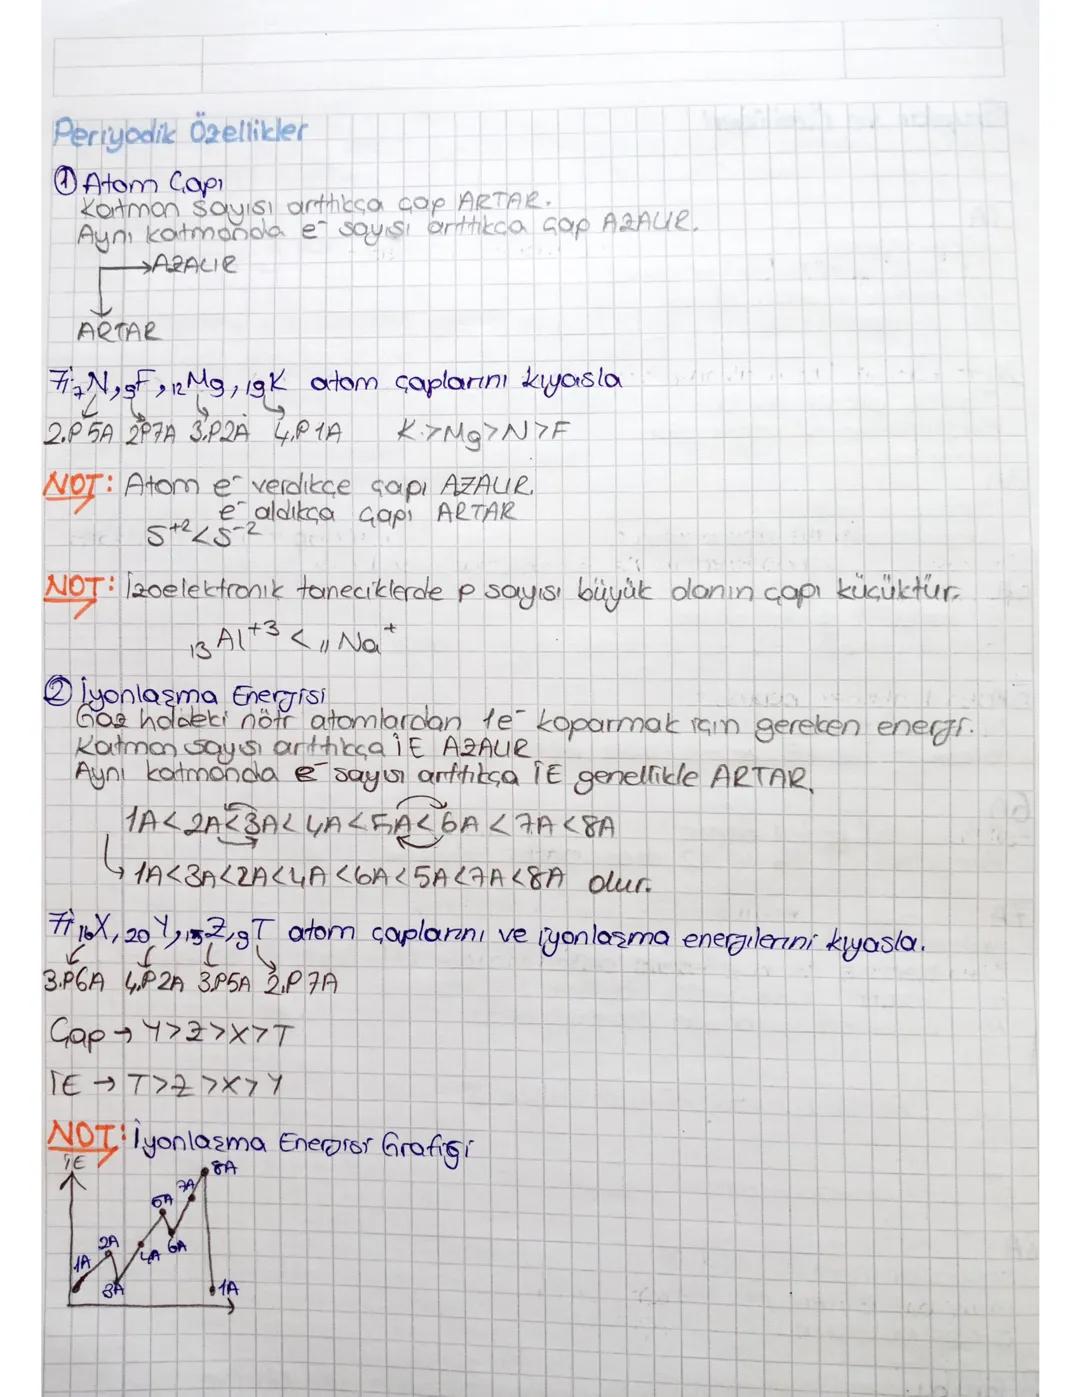 Periyodik Özellikler
① Atom Çapı
Katman sayısı arttıkça çap ARTAR.
Aynı katmanda e⁻ sayısı arttıkça çap AZALIR.
→AZALIR
ARTAR
₇N, ₉F, ₁₂Mg, ₁₉K atom çaplarını kıyasla
2.P 5A 2P7A 3.P2A 4.P 1A K>Mg>N>F
NOT: Atom e⁻ verdikçe çapı AZALIR.
e⁻ aldıkça çapı ARTAR
S⁺²<S⁻²
NOT: İzoelektronik taneciklerde p sayısı büyük olanın çapı küçüktür.
₁₃Al⁺³ < ₁₁Na⁺
② İyonlaşma Enerjisi
Gaz haldeki nötr atomlardan 1e⁻ koparmak için gereken enerji.
Katman sayısı arttıkça İE AZALIR
Aynı katmanda e⁻ sayısı arttıkça İE genellikle ARTAR.
1A<2A<3A<4A<5A<6A<7A<8A
1A<3A<2A<4A<6A<5A<7A<8A olur.
₁₆X, ₂₀Y, ₁₅Z, ₉T atom çaplarını ve iyonlaşma enerjilerini kıyasla.
3.P6A 4.P2A 3.P5A 2.P 7A
Çap → Y>Z>X>T
İE → T>Z>X>Y
NOT: İyonlaşma Enerjisi Grafiği
İE
8A
7A
5A
2A
6A
4A
1A
3A
1A